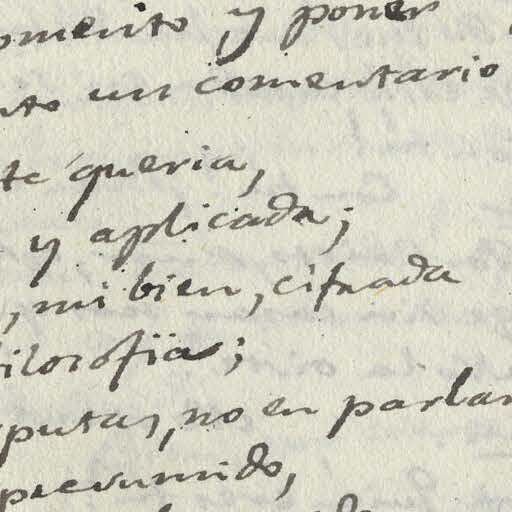 omento, y poner
nto un comentario
te queria,
y aplicada;
, mi bien, cifrada
filosofia;
putas, no en parlar
presumido,